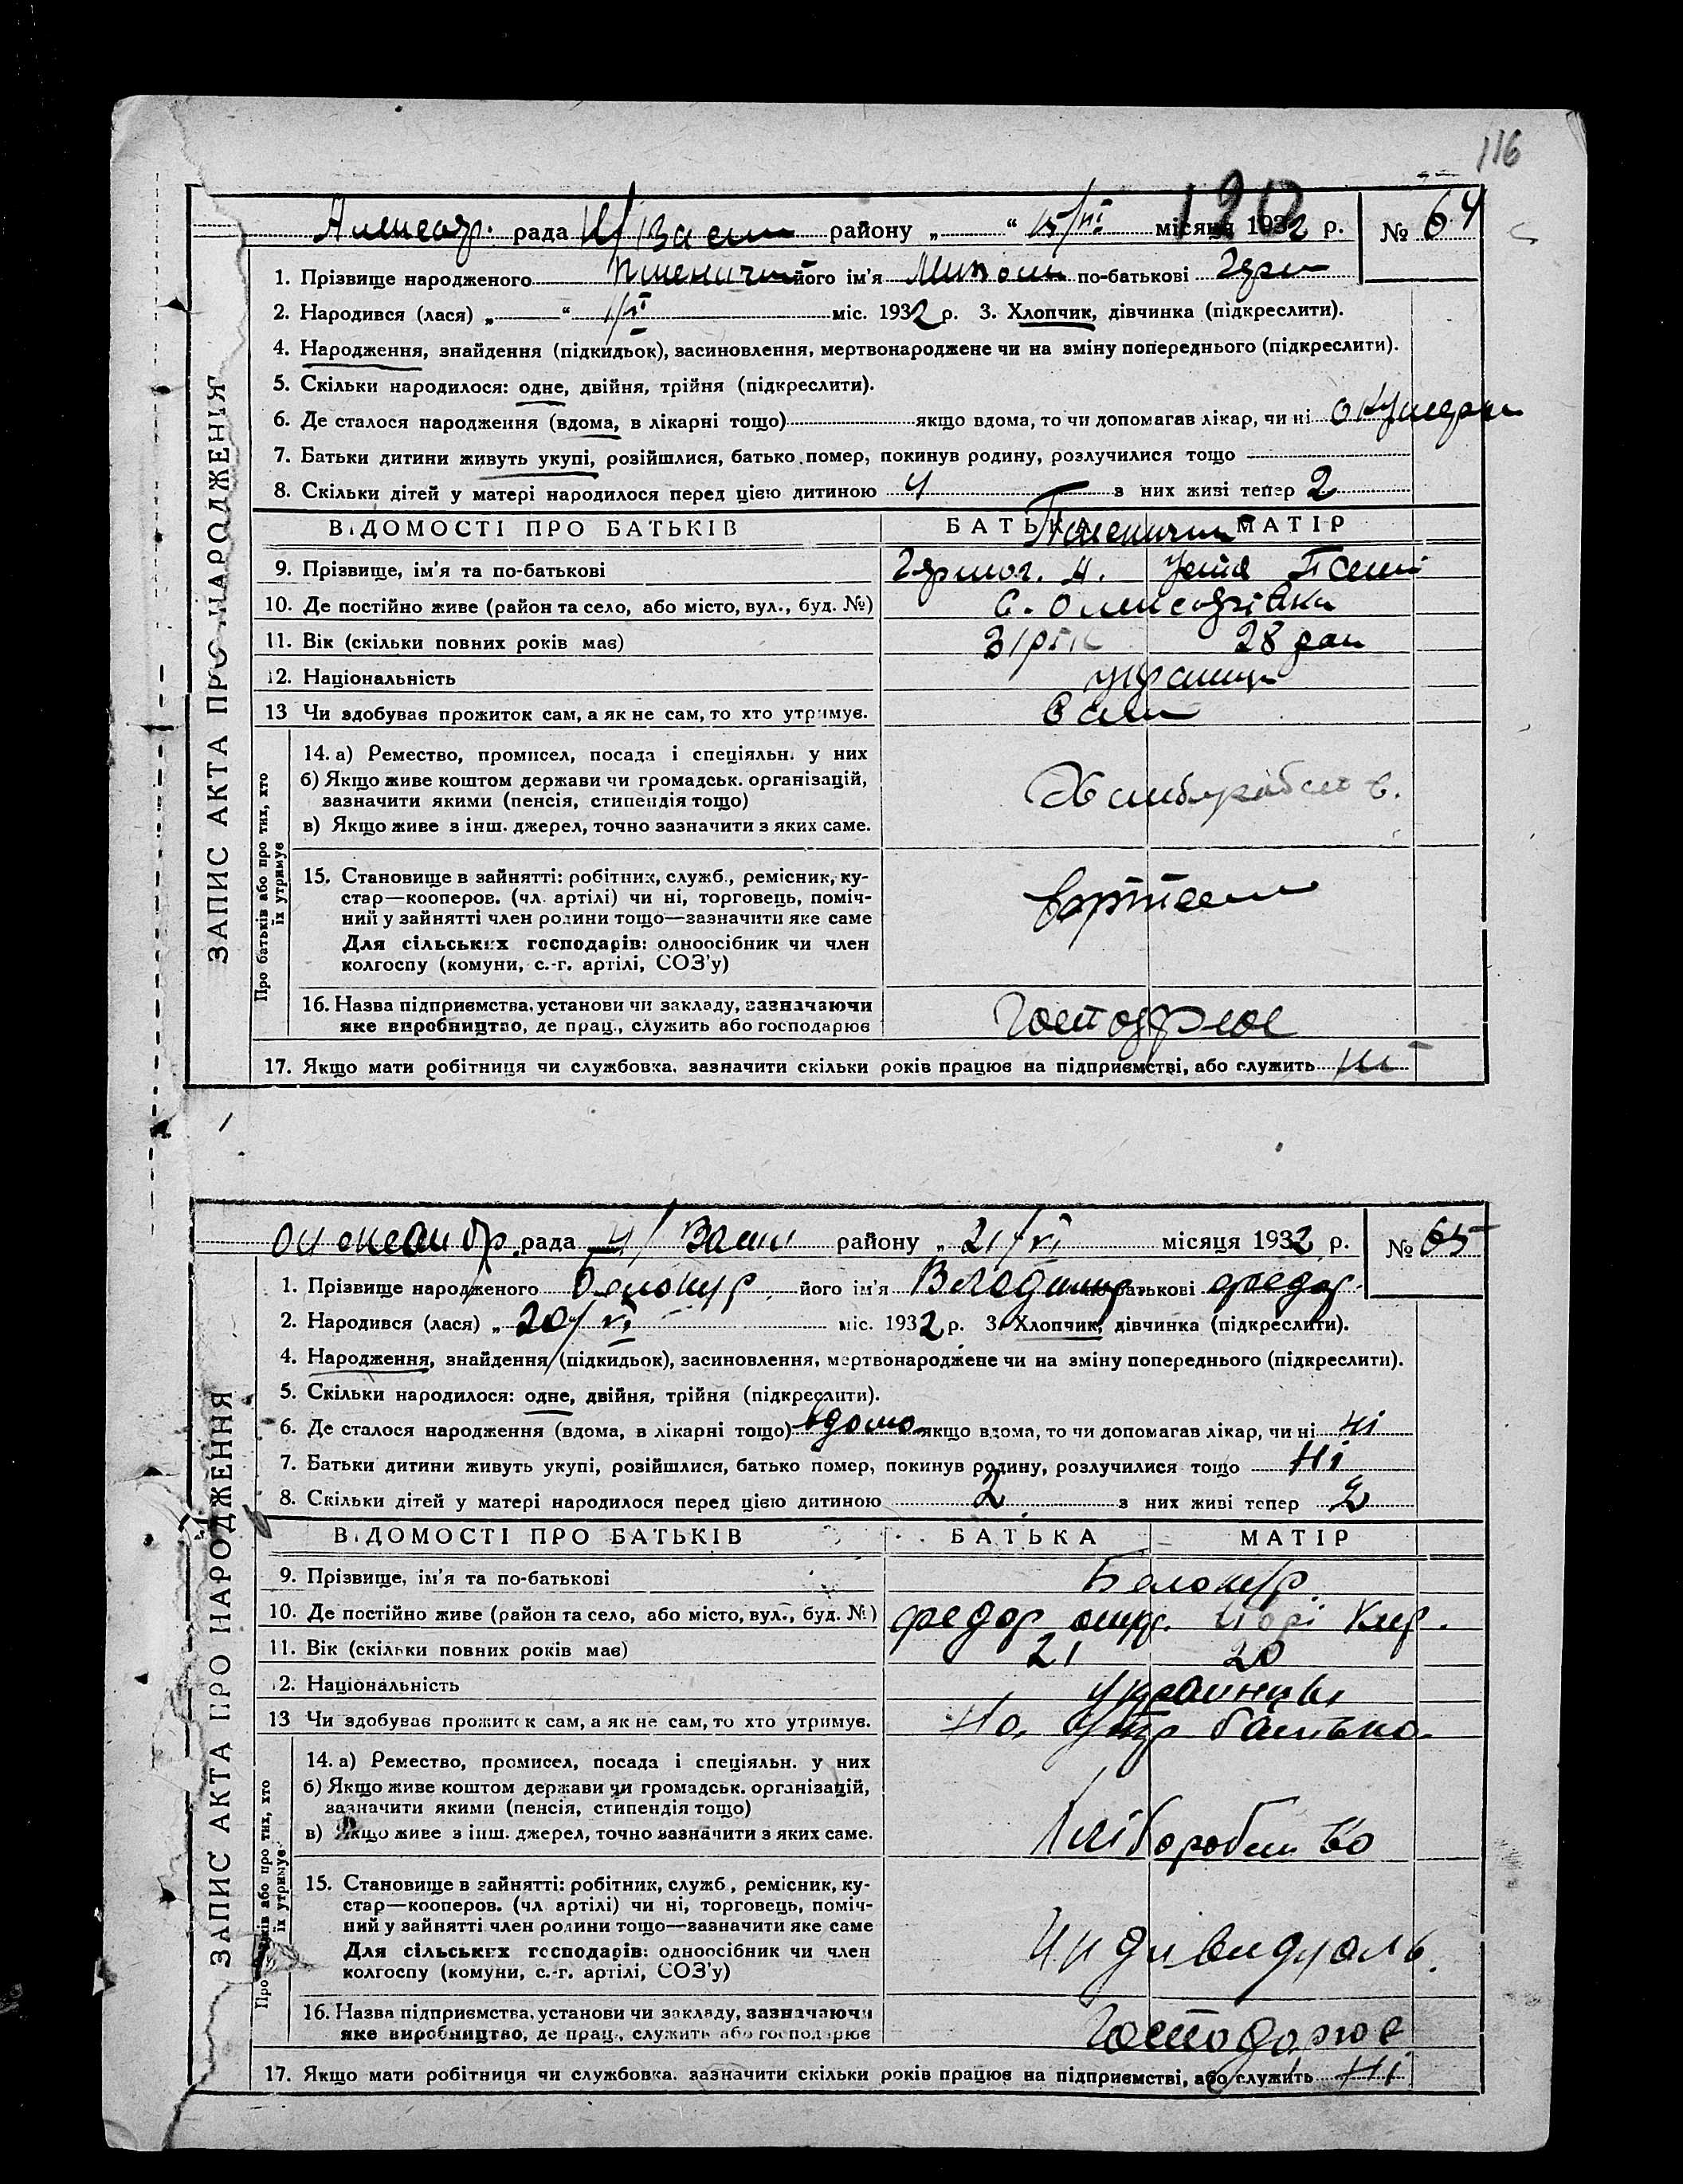 116
120
рада района „ “ 15/VI місяця 1932 р. № 64
1. Прізвище народженого його ім'я по-батькові
2. Народився (лася) „ “ міс. 1932 р. 3. Хлопчик, дівчинка (підкреслити).
4. Народження, знайдення (підкидьок), засиновлення, мертвонароджене чи на зміну попереднього (підкреслити).
5. Скільки народилося: одне, двійня, трійня (підкреслити).
6. Де сталося народження (вдома, в лікарні тощо) якщо вдома, то чи допомагав лікар, чи ні
7. Батьки дитини живуть укупі, розійшлися, батько помер, покинув родину, розлучилися тощо
8. Скільки дітей у матері народилося перед цією дитиною 4 з них живі тепер 2
ВІДОМОСТІ ПРО БАТЬКІВ БАТЬКА МАТІР
9. Прізвище, ім'я та по-батькові
10. Де постійно живе (район та село, або місто, вул., буд. №)
11. Вік (скільки повних років має) 31 рік 28 рок
12. Національність
13 Чи здобуває прожиток сам, а як не сам, то хто утримує. Сам
14. а) Ремество, промисел, посада і спеціяльн. у них
б) Якщо живе коштом держави чи громадськ. організацій,
зазначити якими (пенсія, стипендія тощо)
в) Якщо живе з інш. джерел, точно зазначити з яких саме.
15. Становище в зайнятті: робітник, служб., ремісник, ку-
стар—кооперов. (чл. артілі) чи ні, торговець, поміч-
ний у зайнятті член родини тощо—зазначити яке саме
Для сільських господарів: одноосібник чи член
колгоспу (комуни, с.-г. артілі, СОЗ'у)
16. Назва підприємства, установи чи закладу, зазначаючи
яке виробництво, де прац., служить або господарює Господарює
17. Якщо мати робітниця чи службовка, зазначити скільки років працює на підприємстві, або служить ні
ЗАПИС АКТА ПРО НАРОДЖЕННЯ
Про батьків або про тих, хто
їх утримує
Олександр. рада району „ 21/VI місяця 1932 р. № 65
1. Прізвище народженого Белокур його ім'я Володимир по-батькові Федор.
2. Народився (лася) „ 20/VI міс. 1932 р. 3. Хлопчик, дівчинка (підкреслити).
4. Народження, знайдення (підкидьок), засиновлення, мертвонароджене чи на зміну попереднього (підкреслити).
5. Скільки народилося: одне, двійня, трійня (підкреслити).
6. Де сталося народження (вдома, в лікарні тощо) вдома якщо вдома, то чи допомагав лікар, чи ні ні
7. Батьки дитини живуть укупі, розійшлися, батько помер, покинув родину, розлучилися тощо Ні
8. Скільки дітей у матері народилося перед цією дитиною 2 з них живі тепер 2
ВІДОМОСТІ ПРО БАТЬКІВ БАТЬКА МАТІР
9. Прізвище, ім'я та по-батькові Белокур
10. Де постійно живе (район та село, або місто, вул., буд. №) Федор
11. Вік (скільки повних років має) 21 20
12. Національність
13 Чи здобуває прожиток сам, а як не сам, то хто утримує. батько
14. а) Ремество, промисел, посада і спеціяльн. у них
б) Якщо живе коштом держави чи громадськ. організацій,
зазначити якими (пенсія, стипендія тощо)
в) Якщо живе з інш. джерел, точно зазначити з яких саме.
15. Становище в зайнятті: робітник, служб., ремісник, ку-
стар—кооперов. (чл. артілі) чи ні, торговець, поміч-
ний у зайнятті член родини тощо—зазначити яке саме
Для сільських господарів: одноосібник чи член
колгоспу (комуни, с.-г. артілі, СОЗ'у)
Индивидуаль.
16. Назва підприємства, установи чи закладу, зазначаючи
яке виробництво, де прац., служить або господарює Господарює
17. Якщо мати робітниця чи службовка, зазначити скільки років працює на підприємстві, або служить Ні
ЗАПИС АКТА ПРО НАРОДЖЕННЯ
їх утримує